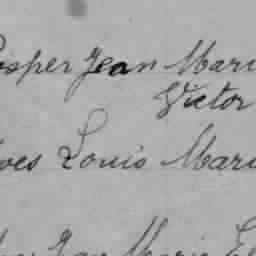 osper Jean Mari
Victor
ves Louis Mari
Jean Marie